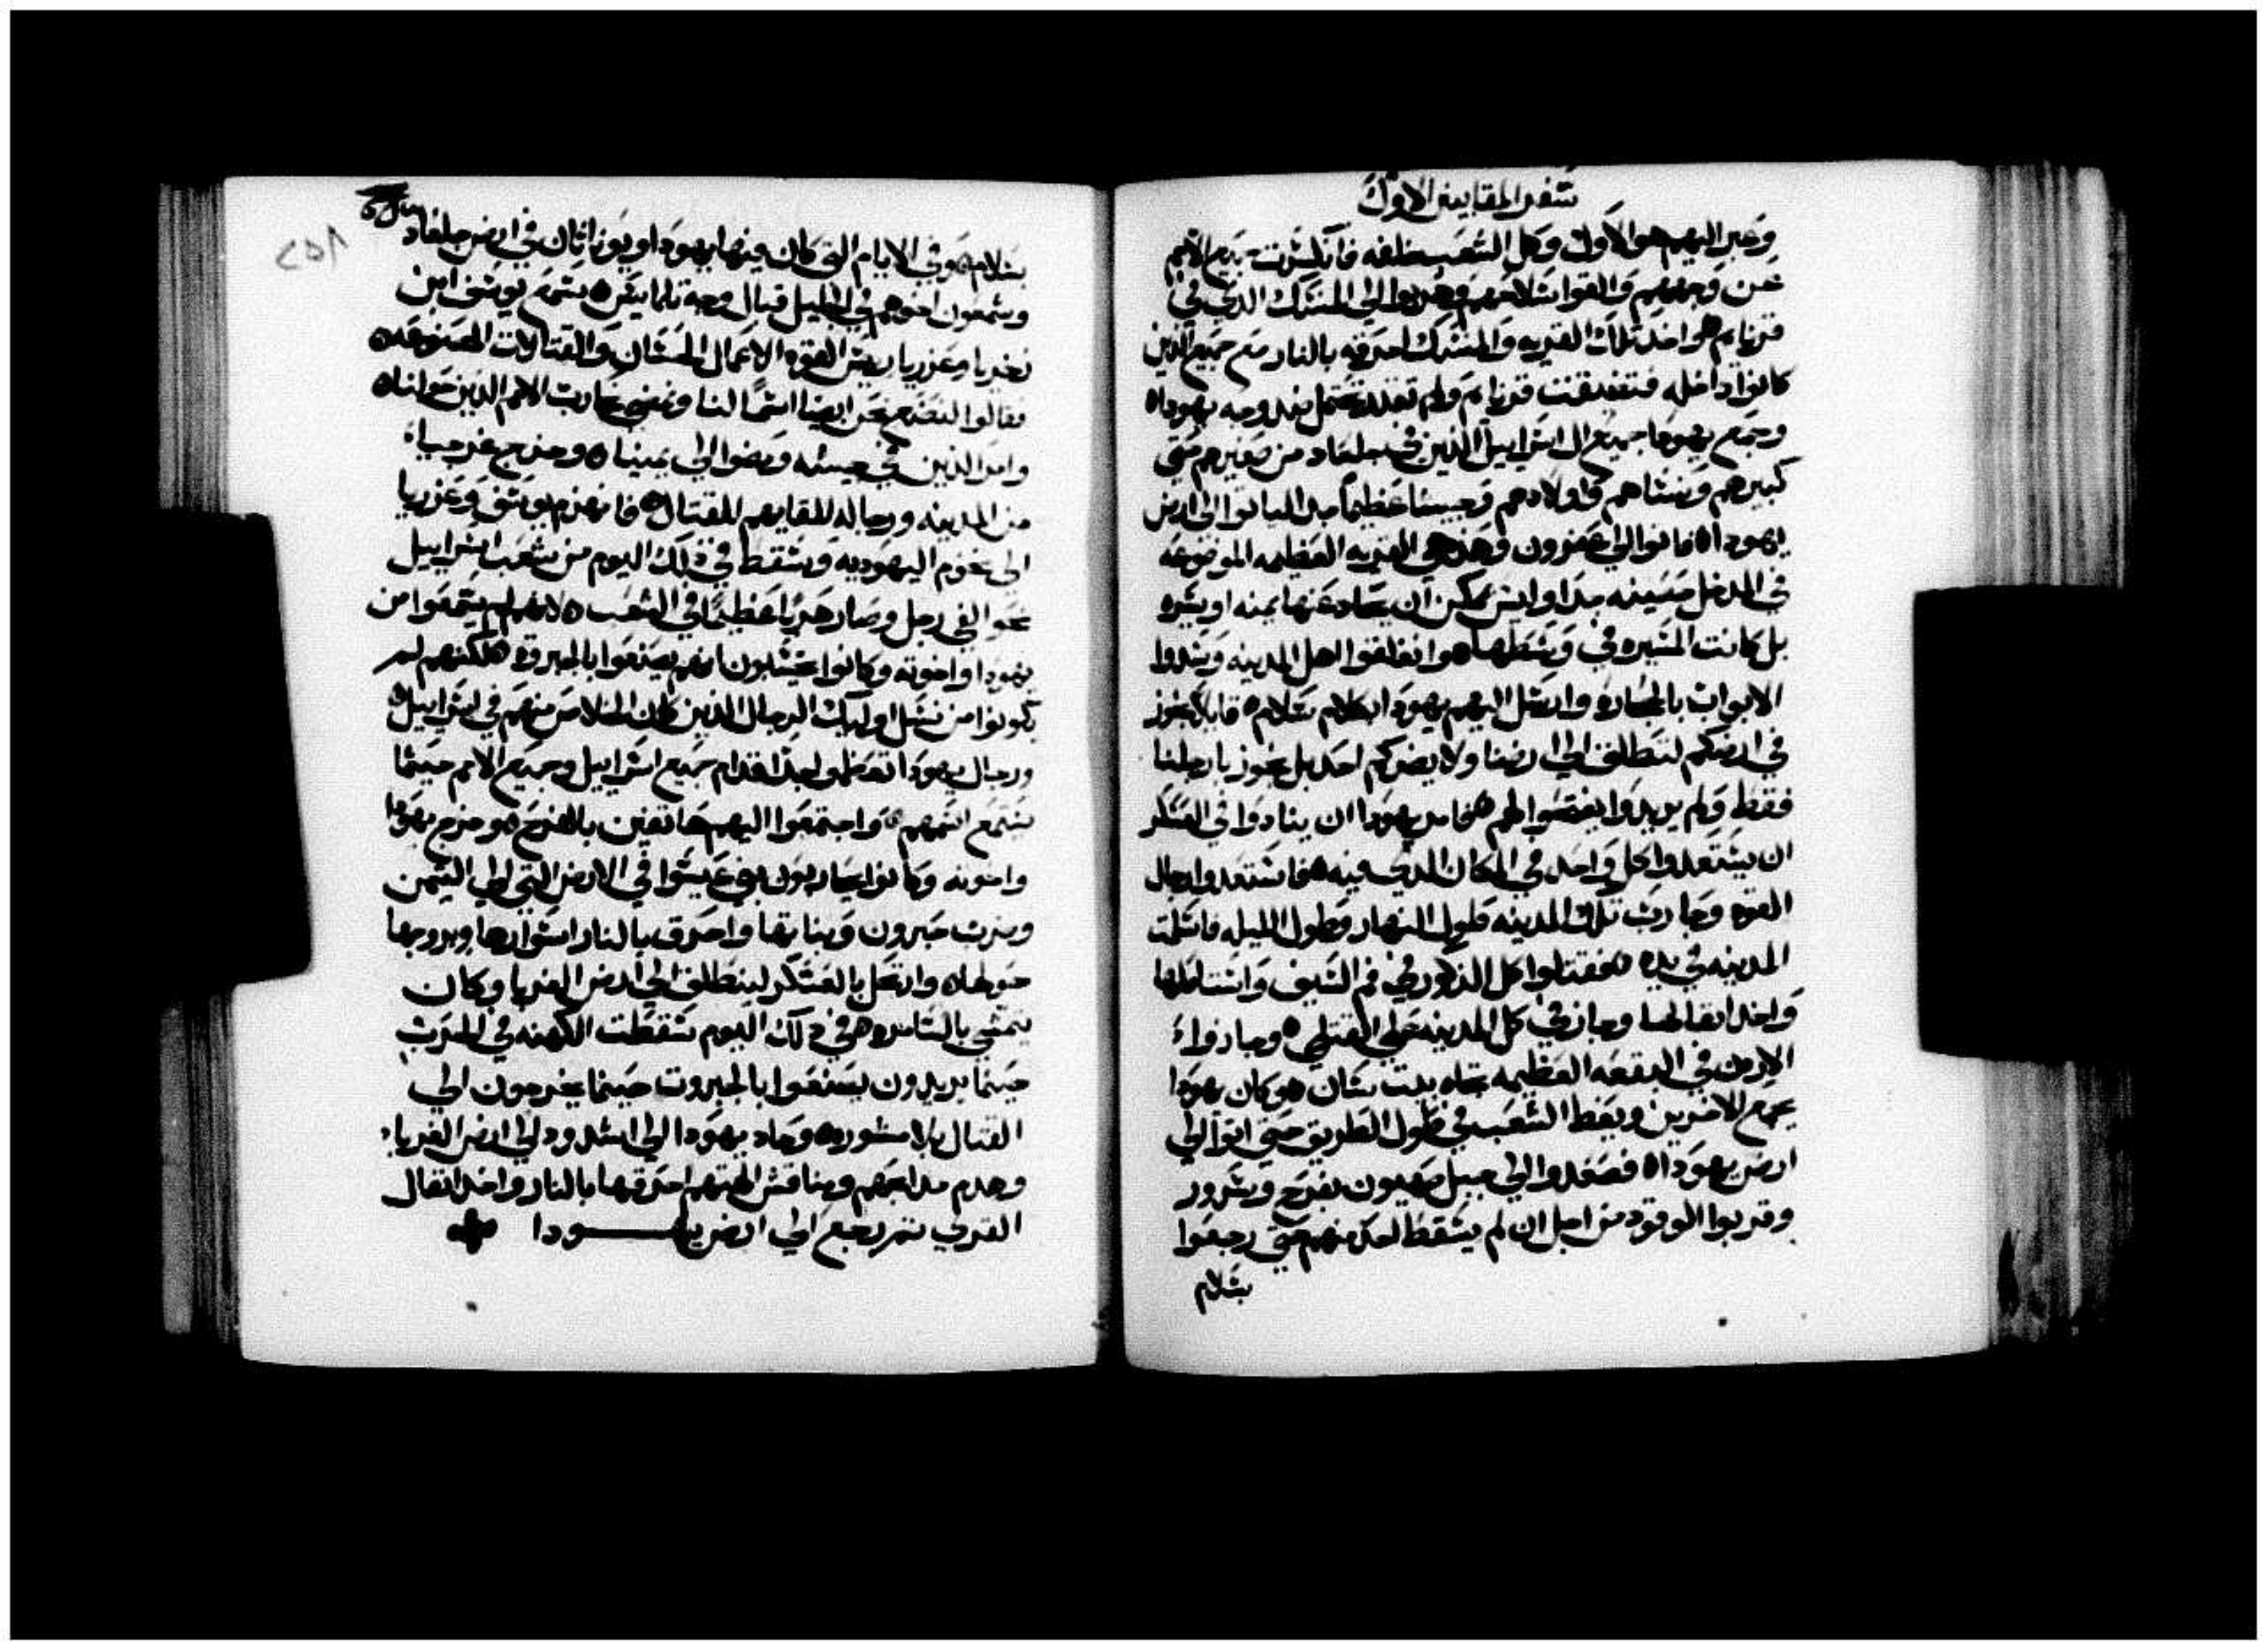 سفر المقابيين الاول
وعبر اليهم هو الاول وكل الشعب خلفه فانكسرت جميع الامم
عن وجههم والقوا سلاحهم وهربوا الي المنسك الدي في
قرنايم هو اخد تلك القريه والمنسك احرقه بالنار مع جميع الدين
كانوا داخله فتضيقت قرنايم ولم تقدر تحتمل ضد وجه يهودا
وجمع يهودا جميع ال اسراييل الدين في جلعاد من صغيرهم حتي
كبيرهم ونساهم واولادهم وجيسا عظيما جدا لياتوا الي ارض
يهودا فاتوا الي عفرون وهده هي القريه العظيمه الموضوعه
في المدخل حصينه جدا وليس يمكن ان يحاد عنها يمنه او يسره
بل كانت المسيره في وسطها هو انغلقوا اهل المدينه وسدوا
الابواب بالحجاره وارسل اليهم يهودا بكلام سلام قايلا نجوز
في ارضكم لننطلق الي ارضنا ولا يضركم احد بل نجوز بارجلنا
فقط ولم يريدوا يفتحوا لهم فامر يهودا ان ينادوا في العسكر
ان يستعدوا كل واحد في المكان الدي فيه فاستعدوا رجال
القوه وحارب تلك المدينه طول النهار وطول الليله فاسلمت
المدينه في يده فقتلوا كل الدكور في فم السيف واستاصلها
واخد اثقالها وجاز في كل المدينه علي القتلي وجازوا
الاردن في البقعه العظيمه تجاه بيت سان وكان يهودا
يجمع الاخرين ويعظ الشعب في طول الطريق حتي اتوا الي
ارض يهودا فصعدوا الي جبل صهيون بفرح وسرور
وقربوا الوقود من اجل ان لم يسقط احد منهم حتي رجعوا
بسلام
بسلام وفي الايام التي كان فيها يهودا ويوناثان في ارض جلعاد
وشمعون اخوهم في الجليل قبال وجه تلمايس سمع يوسف ابن
زخريا وعزريا ريس القوه الاعمال الحسان والقتالات المصنوعه
فقالوا لنصنع نحن ايضا اسما لنا ونمضي نحارب الامم الدين حولنا
وامر الدين في جيسه ومضوا الي يمنيا وخرج غرجيا
من المدينه ورجاله للقايهم للقتال فانهزم يوسف وعزريا
الي تخوم اليهوديه وسقط في دلك اليوم من شعب اسراييل
نحو الفي رجل وصار هربا عظيما في الشعب لانهم لم يسمعوا من
يهودا واخوته وكانوا يحسبون انهم يصنعوا بالجبروة لكنهم لم
يكونوا من نسل اوليك الرجال الدين كان الخلاص منهم في اسراييل
ورجال يهودا تعظموا جدا قدام جميع اسراييل وجميع الامم حيثما
يسمع اسمهم واجتمعوا اليهم هاتفين بالفرح وخرج يهودا
واخوته وكانوا يحاربون بني عيسوا في الارض التي الي التيمن
وضرب حبرون وبناتها واحرق بالنار اسوارها وبروجها
حولها وارتحل بالعسكر لينطلق الي ارض الغربا وكان
يمشي بالسامره في دلك اليوم سقطت الكهنه في الحرب
حيثما يريدون يصنعوا بالجبروت حيثما يخرجون الي
القتال بلا مشوره وحاد يهودا الي اشدود الي ارض الغربا
وهدم مدابحهم ومناقش الهتهم احرقها بالنار واخد اثقال
القري تم رجع الي ارض يهودا